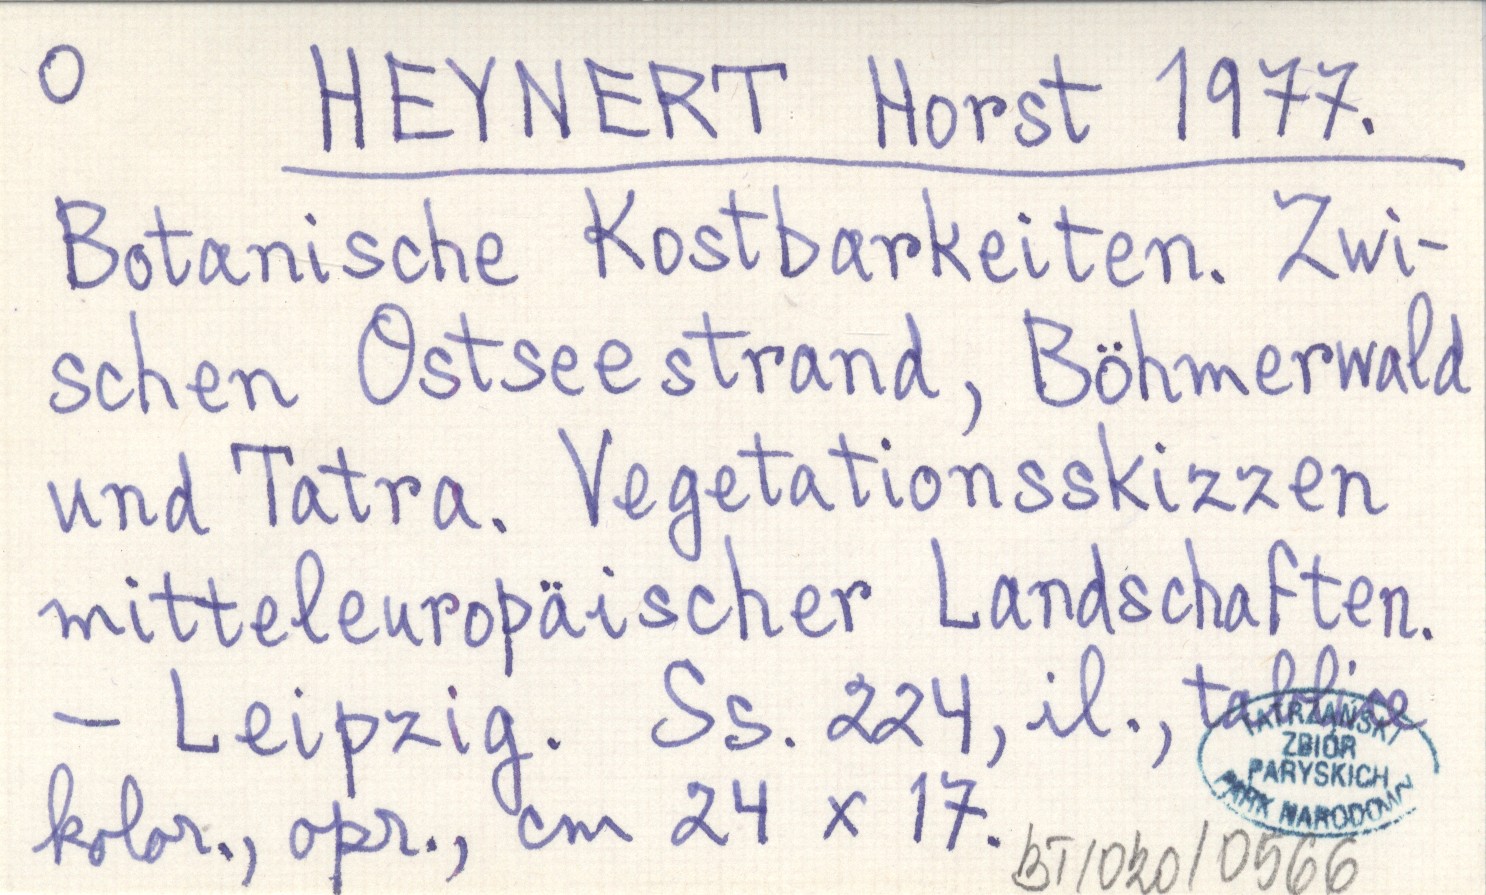 O HEYNERT Horst 1977.
Botanische Kostbarkeiten. Zwi-
schen Ostseestrand, Böhmerwald
und Tatra. Vegetationsskizzen
mitteleuropäischer Landschaften.
– Leipzig. Ss. 224, il., tablice
kolor., opr., cm 24 x 17.
TATRZAŃSKI
ZBIÓR
PARYSKICH
PARK NARODOWY
BT/020/0566